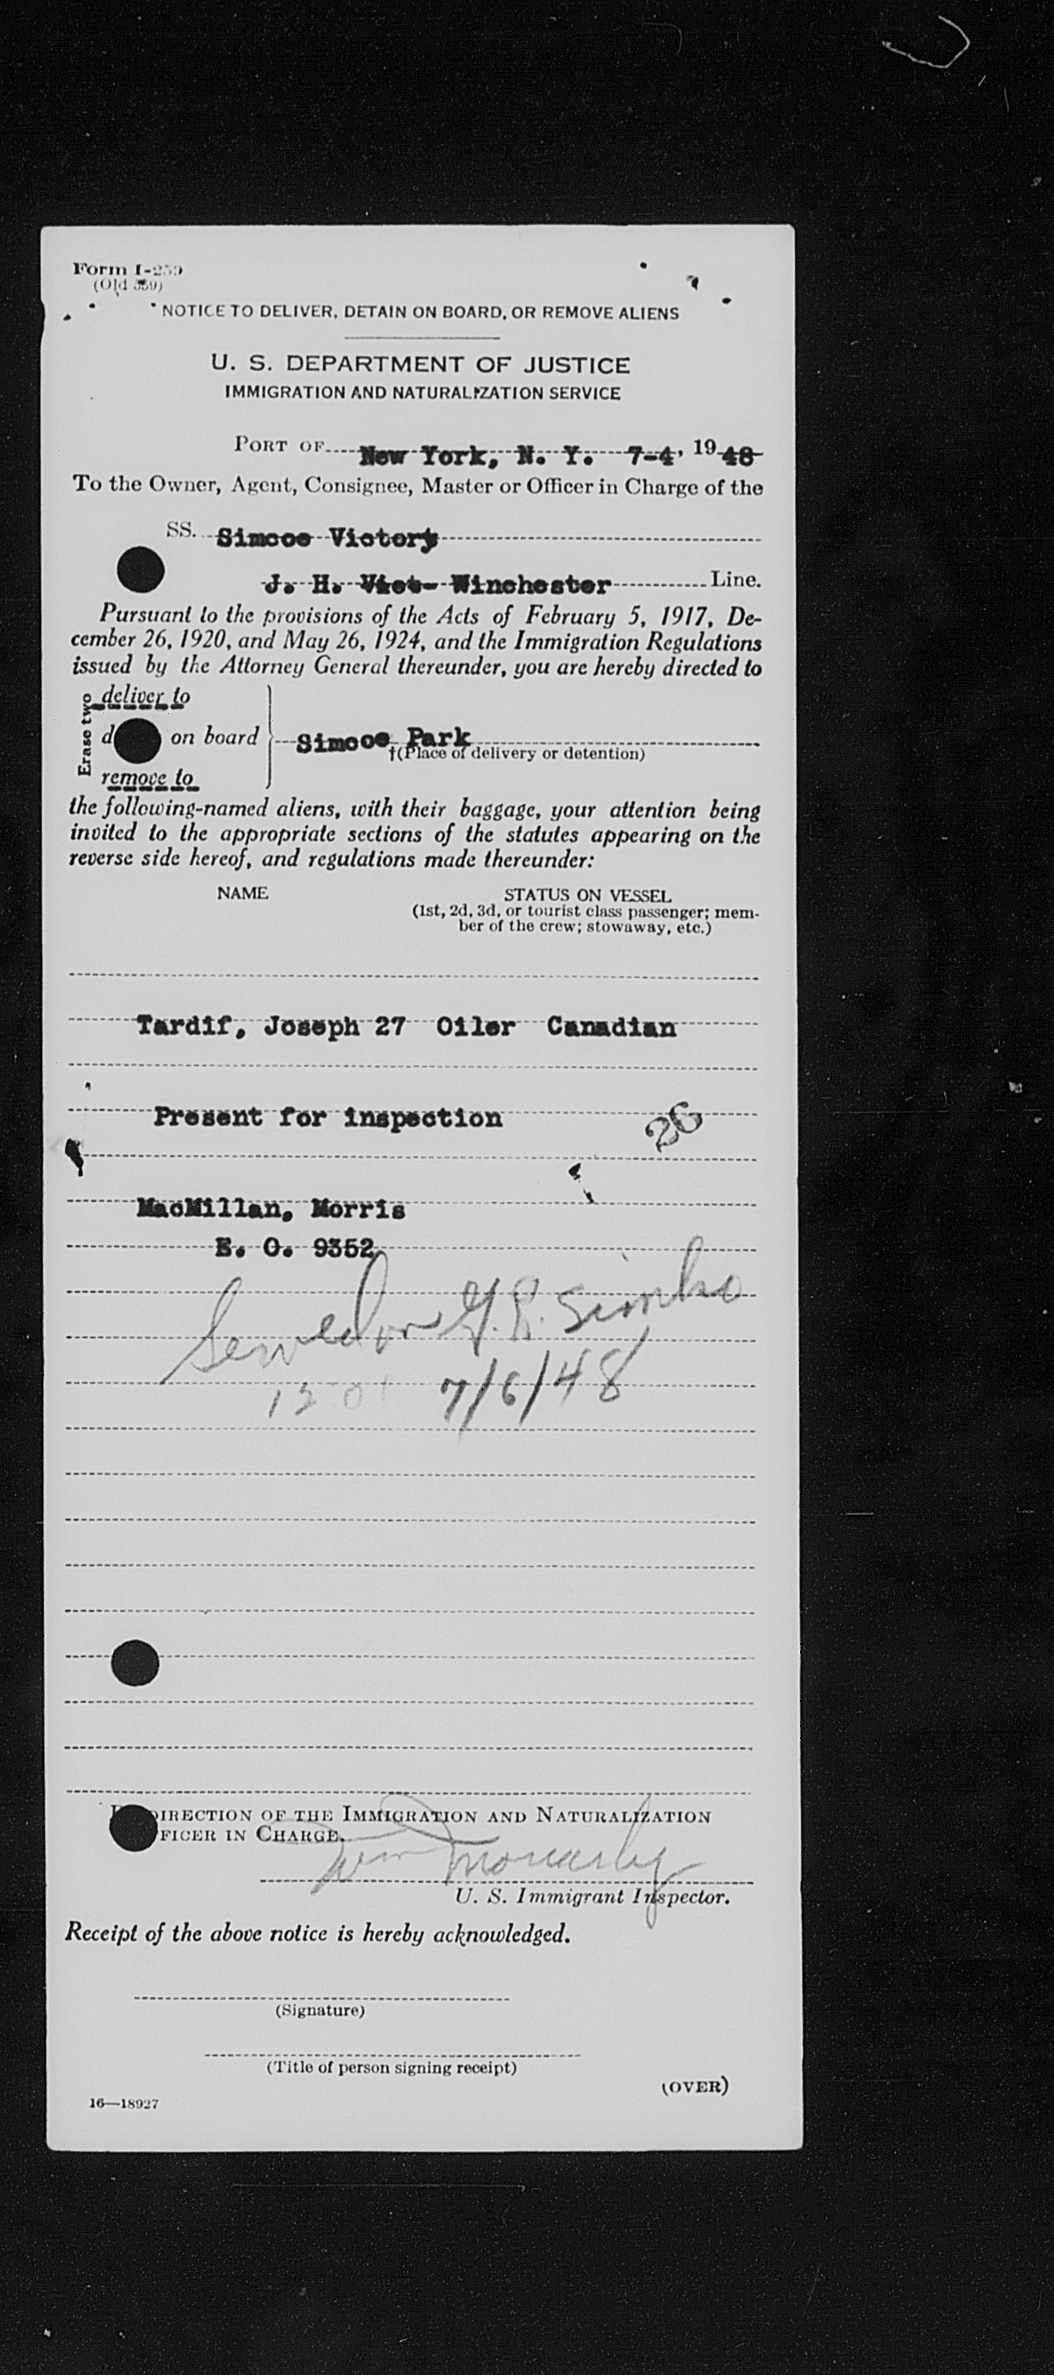 Form I-259
(Old 359)
NOTICE TO DELIVER, DETAIN ON BOARD, OR REMOVE ALIENS
U. S. DEPARTMENT OF JUSTICE
IMMIGRATION AND NATURALIZATION SERVICE
PORT OF New York, N. Y. 7-4, 1948
To the Owner, Agent, Consignee, Master or Officer in Charge of the
SS. Simcoe Victory
J. H. Vict- Winchester Line.
Pursuant to the provisions of the Acts of February 5, 1917, De-
cember 26, 1920, and May 26, 1924, and the Immigration Regulations
issued by the Attorney General thereunder, you are hereby directed to
Erase two
deliver to
d on board
remove to
Simcoe Park
†(Place of delivery or detention)
the following-named aliens, with their baggage, your attention being
invited to the appropriate sections of the statutes appearing on the
reverse side hereof, and regulations made thereunder:
NAME STATUS ON VESSEL
(1st, 2d, 3d, or tourist class passenger; mem-
ber of the crew; stowaway, etc.)
Tardif, Joseph 27 Oiler Canadian
Present for inspection
26
MacMillan, Morris
E. O. 9352
Served on G. R. Simko
7/6/48
DIRECTION OF THE IMMIGRATION AND NATURALIZATION
FICER IN CHARGE.
U. S. Immigrant Inspector.
Receipt of the above notice is hereby acknowledged.
(Signature)
(Title of person signing receipt)
(OVER)
16—18927